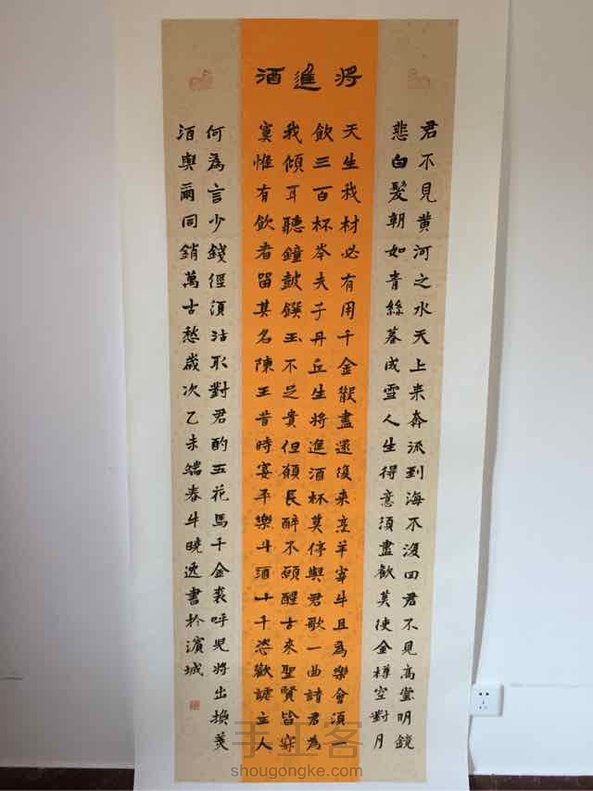 將進酒
君不見黃河之水天上来奔流到海不復回君不見高堂明鏡
悲白髮朝如青絲暮成雪人生得意須盡歡莫使金樽空對月
天生我材必有用千金散盡還復来烹羊宰牛且為樂會須一
飲三百杯岑夫子丹丘生將進酒杯莫停與君歌一曲請君為
我傾耳聽鐘鼓饌玉不足貴但願長醉不願醒古來聖賢皆寂
寞惟有飲者留其名陳王昔時宴平樂斗酒十千恣歡謔主人
何為言少錢徑須沽取對君酌五花馬千金裘呼兒將出換美
酒與爾同銷萬古愁歲次乙未端春牛曉逸書於濱城
手工客
shougongke.com